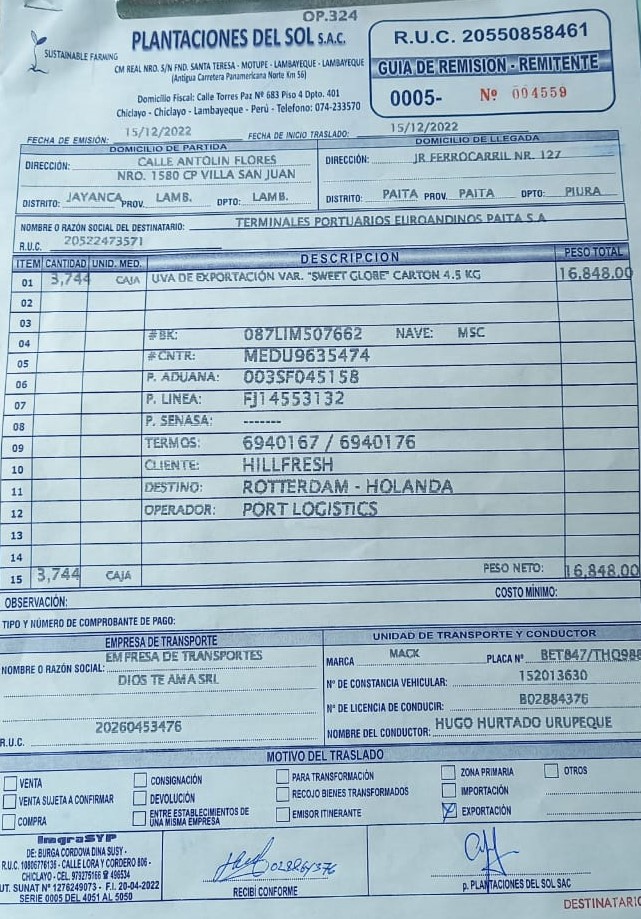 OP.324
SUSTAINABLE FARMING
PLANTACIONES DEL SOL S.A.C.
CM REAL NRO. S/N FND. SANTA TERESA - MOTUPE - LAMBAYEQUE - LAMBAYEQUE
(Antigua Carretera Panamericana Norte Km 56)
Domicilio Fiscal: Calle Torres Paz Nº 683 Piso 4 Dpto. 401
Chiclayo - Chiclayo - Lambayeque - Perú - Telefono: 074-233570
R.U.C. 20550858461
GUIA DE REMISIÓN - REMITENTE
0005- Nº 004559
FECHA DE EMISIÓN: 15/12/2022 FECHA DE INICIO TRASLADO: 15/12/2022
DOMICILIO DE PARTIDA
DIRECCIÓN: CALLE ANTOLIN FLORES
NRO. 1580 CP VILLA SAN JUAN
DISTRITO: JAYANCA PROV. LAMB. DPTO: LAMB.
DOMICILIO DE LLEGADA
DIRECCIÓN: JR FERROCARRIL NR. 127
DISTRITO: PAITA PROV. PAITA DPTO: PIURA
NOMBRE O RAZÓN SOCIAL DEL DESTINATARIO: TERMINALES PORTUARIOS EUROANDINOS PAITA S.A
R.U.C. 20522473571
ITEM CANTIDAD UNID. MED. DESCRIPCION PESO TOTAL
01 3,744 CAJA UVA DE EXPORTACIÓN VAR. "SWEET GLOBE" CARTON 4.5 KG 16,848.00
02
03
04 #BK: 087LIM507662 NAVE: MSC
05 #CNTR: MEDU9635474
06 P. ADUANA: 003SF045158
07 P. LINEA: FJ14553132
08 P. SENASA: -------
09 TERMOS: 6940167 / 6940176
10 CLIENTE: HILLFRESH
11 DESTINO: ROTTERDAM - HOLANDA
12 OPERADOR: PORT LOGISTICS
13
14
15 3,744 CAJA PESO NETO: 16,848.00
OBSERVACIÓN: COSTO MÍNIMO:
TIPO Y NÚMERO DE COMPROBANTE DE PAGO:
EMPRESA DE TRANSPORTE
NOMBRE O RAZÓN SOCIAL: EMPRESA DE TRANSPORTES
DIOS TE AMA SRL
R.U.C. 20260453476
UNIDAD DE TRANSPORTE Y CONDUCTOR
MARCA MACK PLACA Nº BET847/THQ988
Nº DE CONSTANCIA VEHICULAR: 152013630
Nº DE LICENCIA DE CONDUCIR: B02884376
NOMBRE DEL CONDUCTOR: HUGO HURTADO URUPEQUE
MOTIVO DEL TRASLADO
VENTA CONSIGNACIÓN PARA TRANSFORMACIÓN ZONA PRIMARIA OTROS
VENTA SUJETA A CONFIRMAR DEVOLUCIÓN RECOJO BIENES TRANSFORMADOS IMPORTACIÓN
COMPRA ENTRE ESTABLECIMIENTOS DE UNA MISMA EMPRESA EMISOR ITINERANTE EXPORTACIÓN
ImgraSYP
DE: BURGA CORDOVA DINA SUSY -
R.U.C. 10806776136 - CALLE LORA Y CORDERO 806 -
CHICLAYO - CEL. 979275166 ☎ 496534
UT. SUNAT Nº 1276249073 - F.I. 20-04-2022
SERIE 0005 DEL 4051 AL 5050
RECIBÍ CONFORME
p. PLANTACIONES DEL SOL SAC
DESTINATARIO